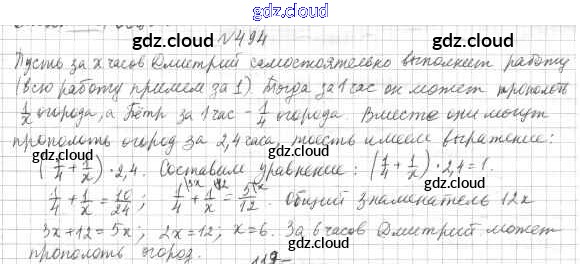 gdz.cloud
№494
gdz.cloud gdz.cloud
Пусть за x часов Дмитрий самостоятельно выполнит работу
(всю работу примем за 1). Тогда за 1 час он может прополоть
1/x огорода, а Пётр за 1 час - 1/4 огорода. Вместе они могут
gdz.cloud gdz.cloud
прополоть огород за 2,4 часа, то есть имеем выражение:
(1/4 + 1/x) · 2,4. Составим уравнение: (1/4 + 1/x) · 2,4 = 1.
gdz.cloud gdz.cloud
1/4 + 1/x = 10/24; 1/4 \3x + 1/x \12 = 5/12 \x. Общий знаменатель 12x
3x + 12 = 5x; 2x = 12; x = 6. За 6 часов Дмитрий может
gdz.cloud gdz.cloud
прополоть огород.